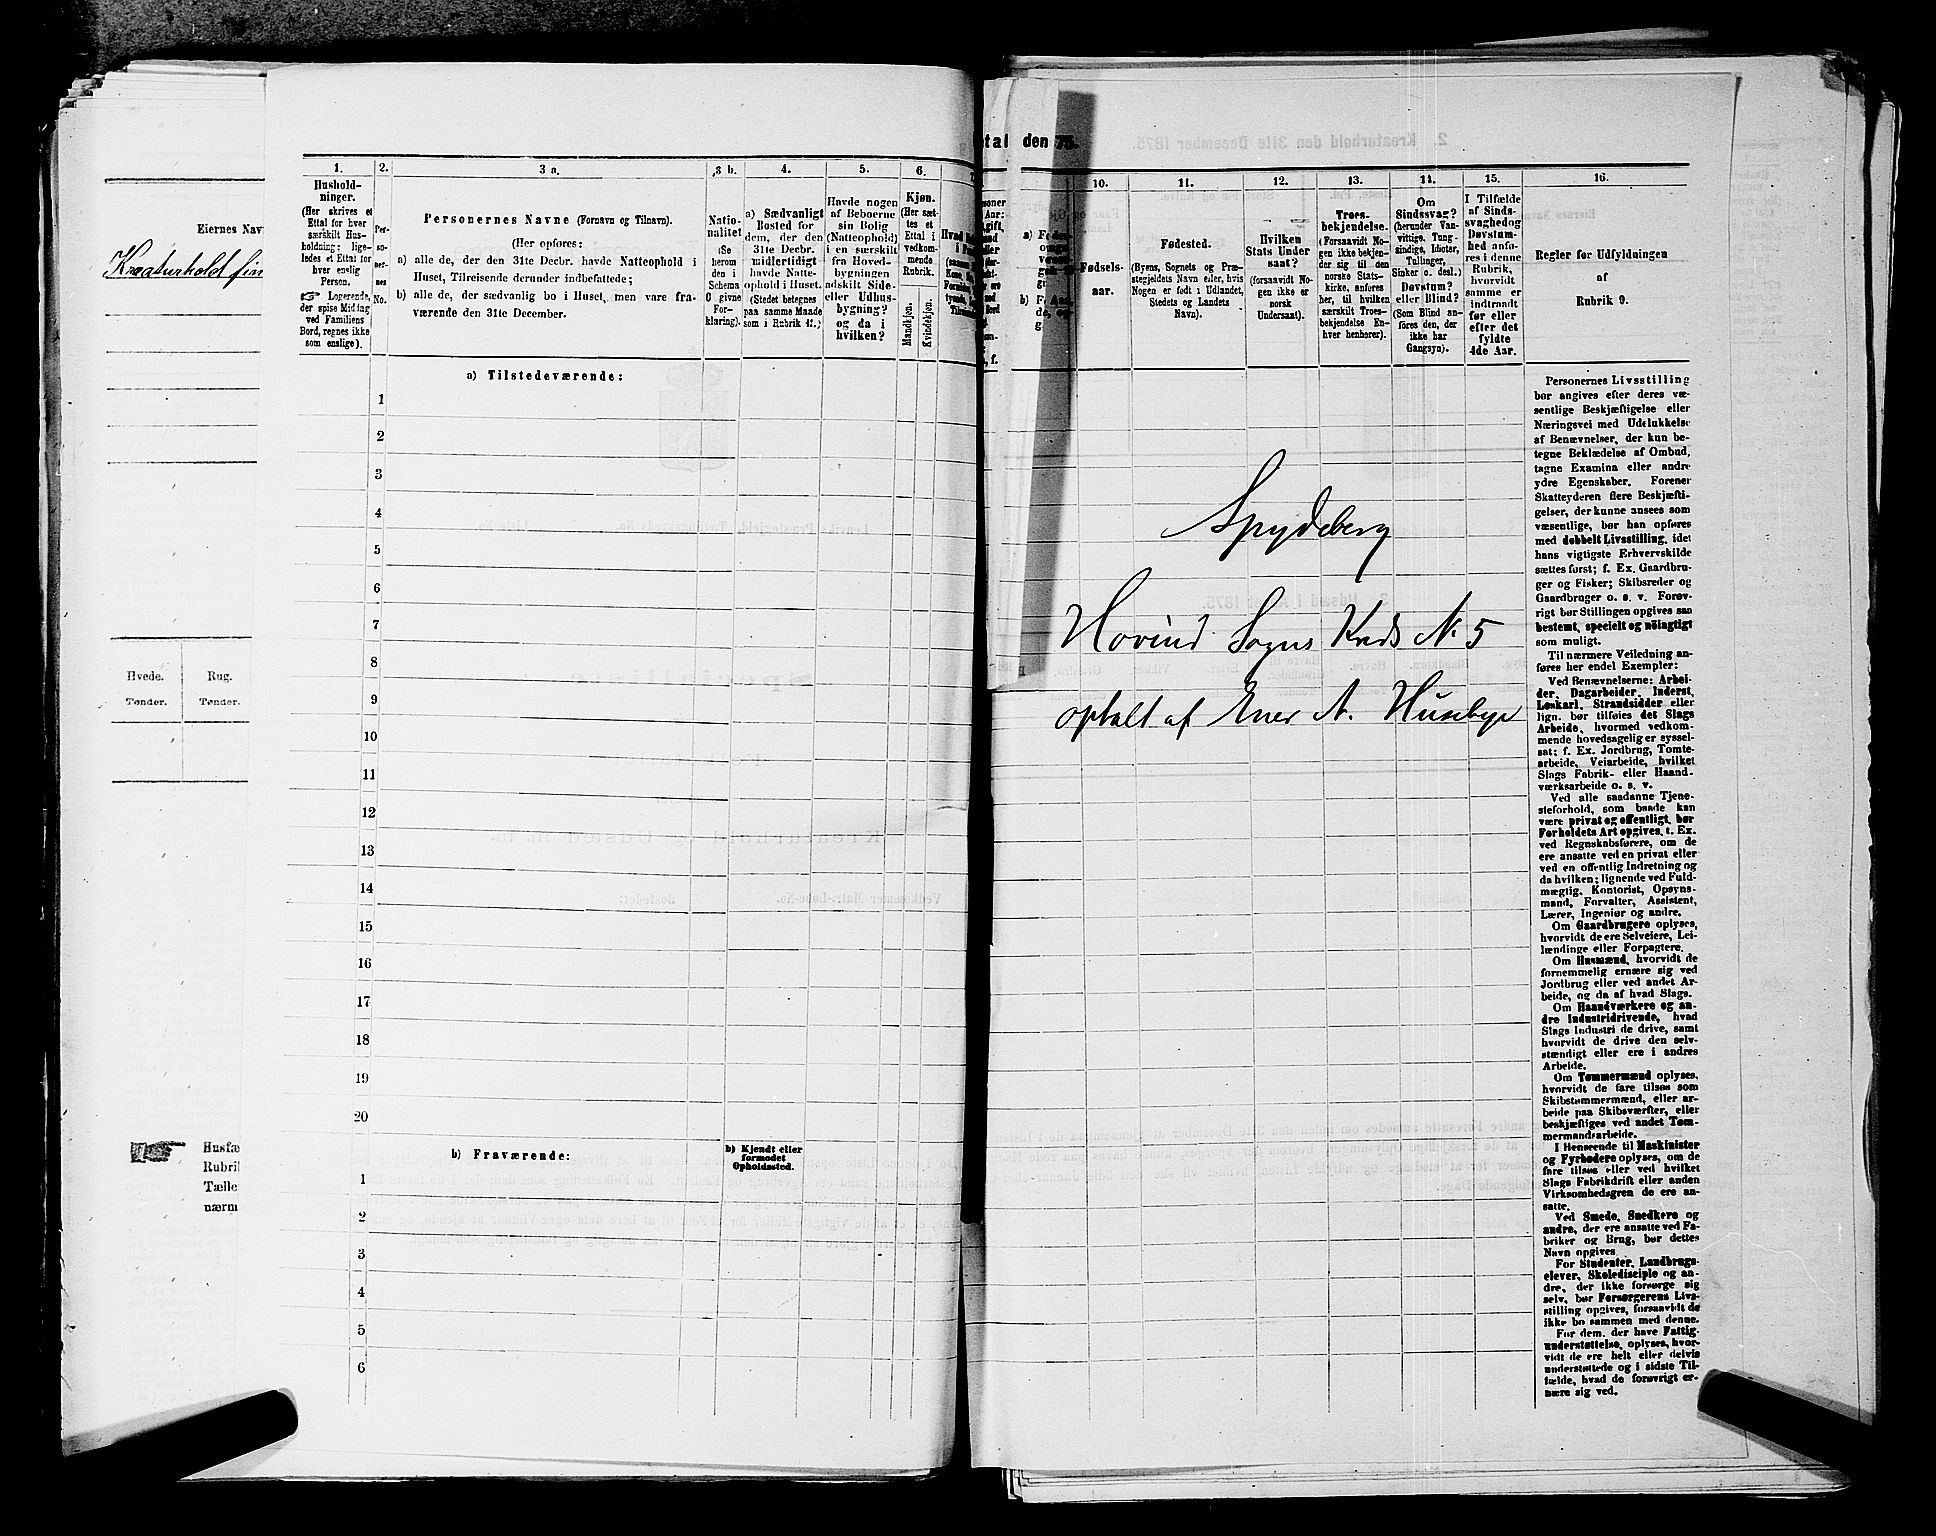 Eiernes Nav
Kreaturhold fin
Hvede. Rug.
Tønder. Tønder.
Husfæ
Rubrik
Tælle
nærm
1. 2. 3 a. 3 b. 4. 5. 6.
Hushold-
ninger.
(Her skrives et
Ettal for hver
særskilt Hus-
holdning; lige-
ledes et Ettal for
hver enslig
Person.
☞ Logerende,
der spise Middag
ved Familiens
Bord, regnes ikke
som enslige).
Per-
so-
ner-
nes
No.
Personernes Navne (Fornavn og Tilnavn).
(Her opføres:
a) alle de, der den 31te Decbr. havde Natteophold i
Huset, Tilreisende derunder indbefattede;
b) alle de, der sædvanlig bo i Huset, men vare fra-
værende den 31te December.
Natio-
nalitet
(Se
herom
den i
Schema
C givne
For-
klaring).
a) Sædvanligt
Bosted for
dem, der den
31te Decbr.
midlertidigt
havde Natte-
ophold i Huset.
(Stedet betegnes
paa samme Maade
som i Rubrik 11.)
Havde nogen
af Beboerne
sin Bolig
(Natteophold)
i en særskilt
fra Hoved-
bygningen
adskilt Side-
eller Udhus-
bygning?
og da i
hvilken?
Kjøn.
(Her sæt-
tes et
Ettal i
vedkom-
mende
Rubrik.
Mandkjøn.
Kvindekjøn.
a) Tilstedeværende:
1
2
3
4
5
6
7
8
9
10
11
12
13
14
15
16
17
18
19
20
b) Fraværende:
b) Kjendt eller
formodet
Opholdssted.
1
2
3
4
5
6
tal den 75.
10. 11. 12. 13. 14. 15. 16.
Fødsels-
aar.
Fødested.
(Byens, Sognets og Præ-
stegjeldets Navn eller, hvis
Nogen er født i Udlandet,
Stedets og Landets
Navn).
Hvilken
Stats Under
saat?
(forsaavidt No-
gen ikke er
norsk
Undersaat).
Troes-
bekjendelse.
(Forsaavidt No-
gen ikke bekjen-
der sig til den
norske Stats-
kirke, anføres
her, til hvilken
særskilt Troes-
bekjendelse En-
hver henhører).
Om
Sindssvag?
(herunder Van-
vittige, Tung-
sindige, Idioter,
Tullinger,
Sinker o. desl.)
Døvstum?
eller Blind?
(Som Blind an-
føres den, der
ikke har
Gangsyn).
I Tilfælde
af Sinds-
svaghed og
Døvstum-
hed anfø-
res i denne
Rubrik,
hvorvidt
samme er
indtraadt
før eller
efter det
fyldte
4de Aar.
Regler for Udfyldningen
af
Rubrik 9.
Spydeberg
Hovind Sogns Kreds N. 5
optalt af Iver A. Husebye
Personernes Livsstilling
bør angives efter deres væ-
sentlige Beskjæftigelse eller
Næringsvei med Udelukkelse
af Benævnelser, der kun be-
tegne Beklædelse af Ombud,
tagne Examina eller andre
ydre Egenskaber. Forener
Skatteyderen flere Beskjæfti-
gelser, der kunne ansees som
væsentlige, bør han opføres
med dobbelt Livsstilling, idet
hans vigtigste Erhvervskilde
sættes først; f. Ex. Gaardbru-
ger og Fisker; Skibsreder og
Gaardbruger o. s. v. Forøv-
rigt bør Stillingen opgives saa
bestemt, specielt og nöiagtigt
som muligt.
Til nærmere Veiledning an-
føres her endel Exempler:
Ved Benævnelserne: Arbei-
der, Dagarbeider, Inderst,
Løskarl, Strandsidder eller
lign. bør tilføies det Slags
Arbeide, hvormed vedkom-
mende hovedsagelig er syssel-
sat; f. Ex. Jordbrug, Tomte-
arbeide, Veiarbeide, hvilket
Slags Fabrik- eller Haand-
værksarbeide o. s. v.
Ved alle saadanne Tjene-
steforhold, som baade kan
være privat og offentligt, bør
Forholdets Art opgives, t. Ex.
ved Regnskabsførere, om de
ere ansatte ved en privat eller
ved en offentlig Indretning og
da hvilken; lignende ved Fuld-
mægtig, Kontorist, Opsyns-
mand, Forvalter, Assistent,
Lærer, Ingeniør og andre.
Om Gaardbrugere oplyses,
hvorvidt de ere Selveiere, Lei-
lændinge eller Forpagtere.
Om Husmænd, hvorvidt de
fornemmelig ernære sig ved
Jordbrug eller ved andet Ar-
beide, og da af hvad Slags.
Om Haandværkere og an-
dre Industridrivende, hvad
Slags Industri de drive, samt
hvorvidt de drive den selv-
stændigt eller ere i andres
Arbeide.
Om Tømmermænd oplyses,
hvorvidt de fare tilsøs som
Skibstømmermænd, eller ar-
beide paa Skibsværfter, eller
beskjæftiges ved andet Tøm-
mermandsarbeide.
I Henseende til Maskinister
og Fyrbødere oplyses, om de
fare tilsøs eller ved hvilket
Slags Fabrikdrift eller anden
Virksomhedsgren de ere an-
satte.
Ved Smede, Snedkere og
andre, der ere ansatte ved Fa-
briker og Brug, bør dettes
Navn opgives.
For Studenter, Landbrugs-
elever, Skoledisciple og an-
dre, der ikke forsørge sig
selv, bør Forsørgerens Livs-
stilling opgives, forsaavidt de
ikke bo sammen med denne.
For dem, der have Fattig-
understøttelse, oplyses, hvor-
vidt de ere helt eller delvis
understøttede og i sidste Til-
fælde, hvad de forøvrigt er-
nære sig ved.